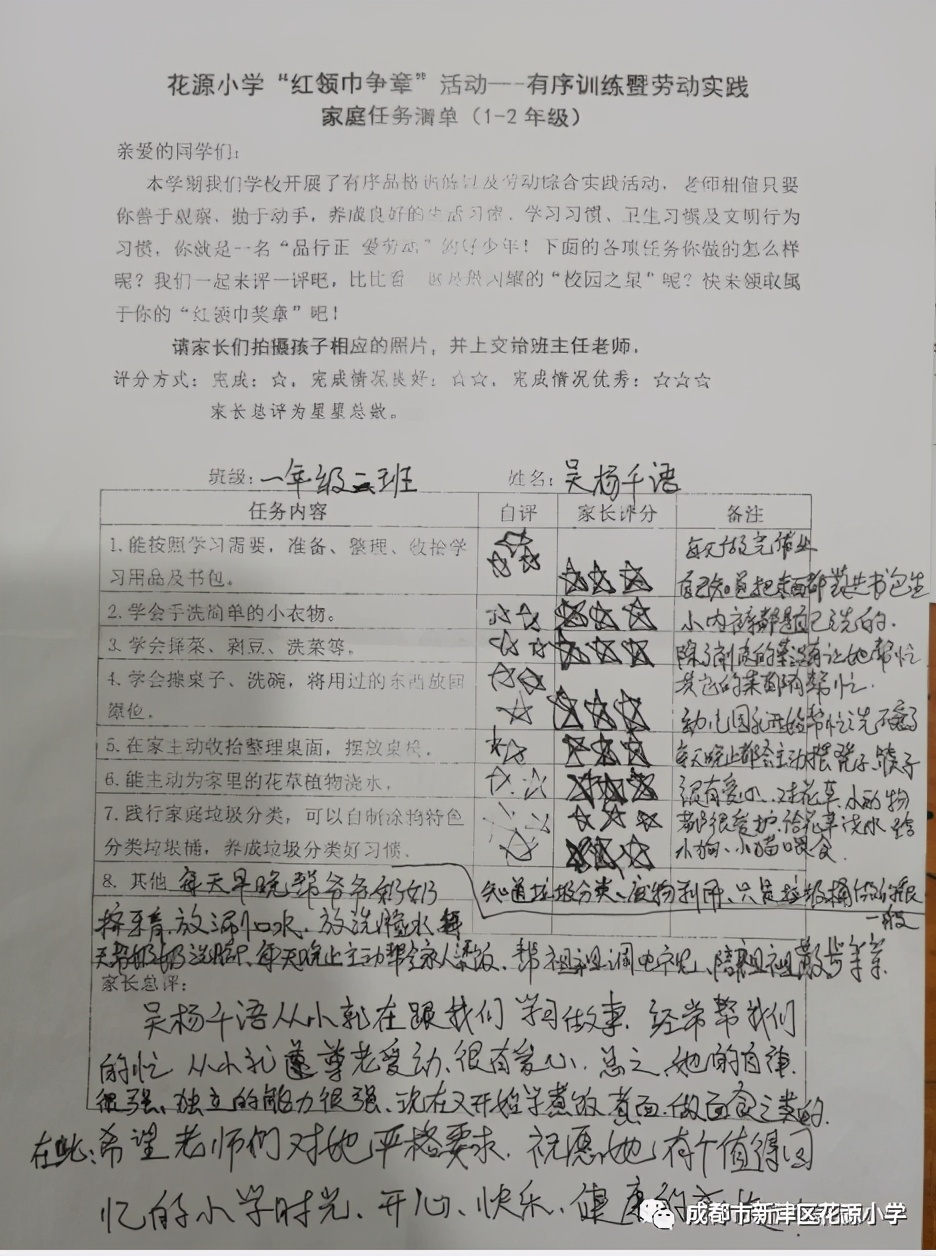 花源小学“红领巾争章”活动---有序训练暨劳动实践
家庭任务清单（1-2年级）
亲爱的同学们：
本学期我们学校开展了有序品格训练以及劳动综合实践活动，老师相信只要
你善于观察，勤于动手，养成良好的生活习惯、学习习惯、卫生习惯及文明行为
习惯，你就是一名“品行正 爱劳动”的好少年！下面的各项任务你做的怎么样
呢？我们一起来评一评吧，比比看 谁是最闪耀的“校园之星”呢？快来领取属
于你的“红领巾奖章”吧！
请家长们拍摄孩子相应的照片，并上交给班主任老师。
评分方式：完成：☆，完成情况良好：☆☆，完成情况优秀：☆☆☆
家长总评为星星总数。
班级：一年级二班 姓名：吴杨千语
任务内容 自评 家长评分 备注
1.能按照学习需要，准备、整理、收拾学
习用品及书包。
每天做完作业
自己知道把东西都装进书包里
2.学会手洗简单的小衣物。
小内裤都是自己洗的.
3.学会择菜、剥豆、洗菜等。
除了削皮的菜没有让她帮忙
其它的菜都有帮忙.
4.学会擦桌子、洗碗，将用过的东西放回
原位。
幼儿园就开始帮忙洗
5.在家主动收拾整理桌面，摆放桌椅。
每天晚上都会主动摆凳子、筷子
6.能主动为家里的花草植物浇水。
很有爱心..对花草.小动物
7.践行家庭垃圾分类，可以自制涂鸦特色
分类垃圾桶，养成垃圾分类好习惯。
都很爱护.给花草浇水 给
小狗、小猫喂食.
8.其他 每天早晚帮爷爷奶奶
知道垃圾分类、废物利用、只是垃圾桶做的很
一般
挤牙膏.放漱口水、放洗脸水 每
天帮奶奶洗脚、每天晚上主动帮全家人添饭、帮祖祖调电视、陪祖祖散步等等
家长总评：
吴杨千语从小就在跟我们学习做事.经常帮我们
的忙 从小就 尊老爱幼.很有爱心.总之.她的自律
很强、独立的能力很强、现在又开始学煮饭 煮面.做面食之类的.
在此：希望老师们对她严格要求.祝愿她有个值得回
忆的小学时光、开心、快乐、健康的
成都市新津区花源小学